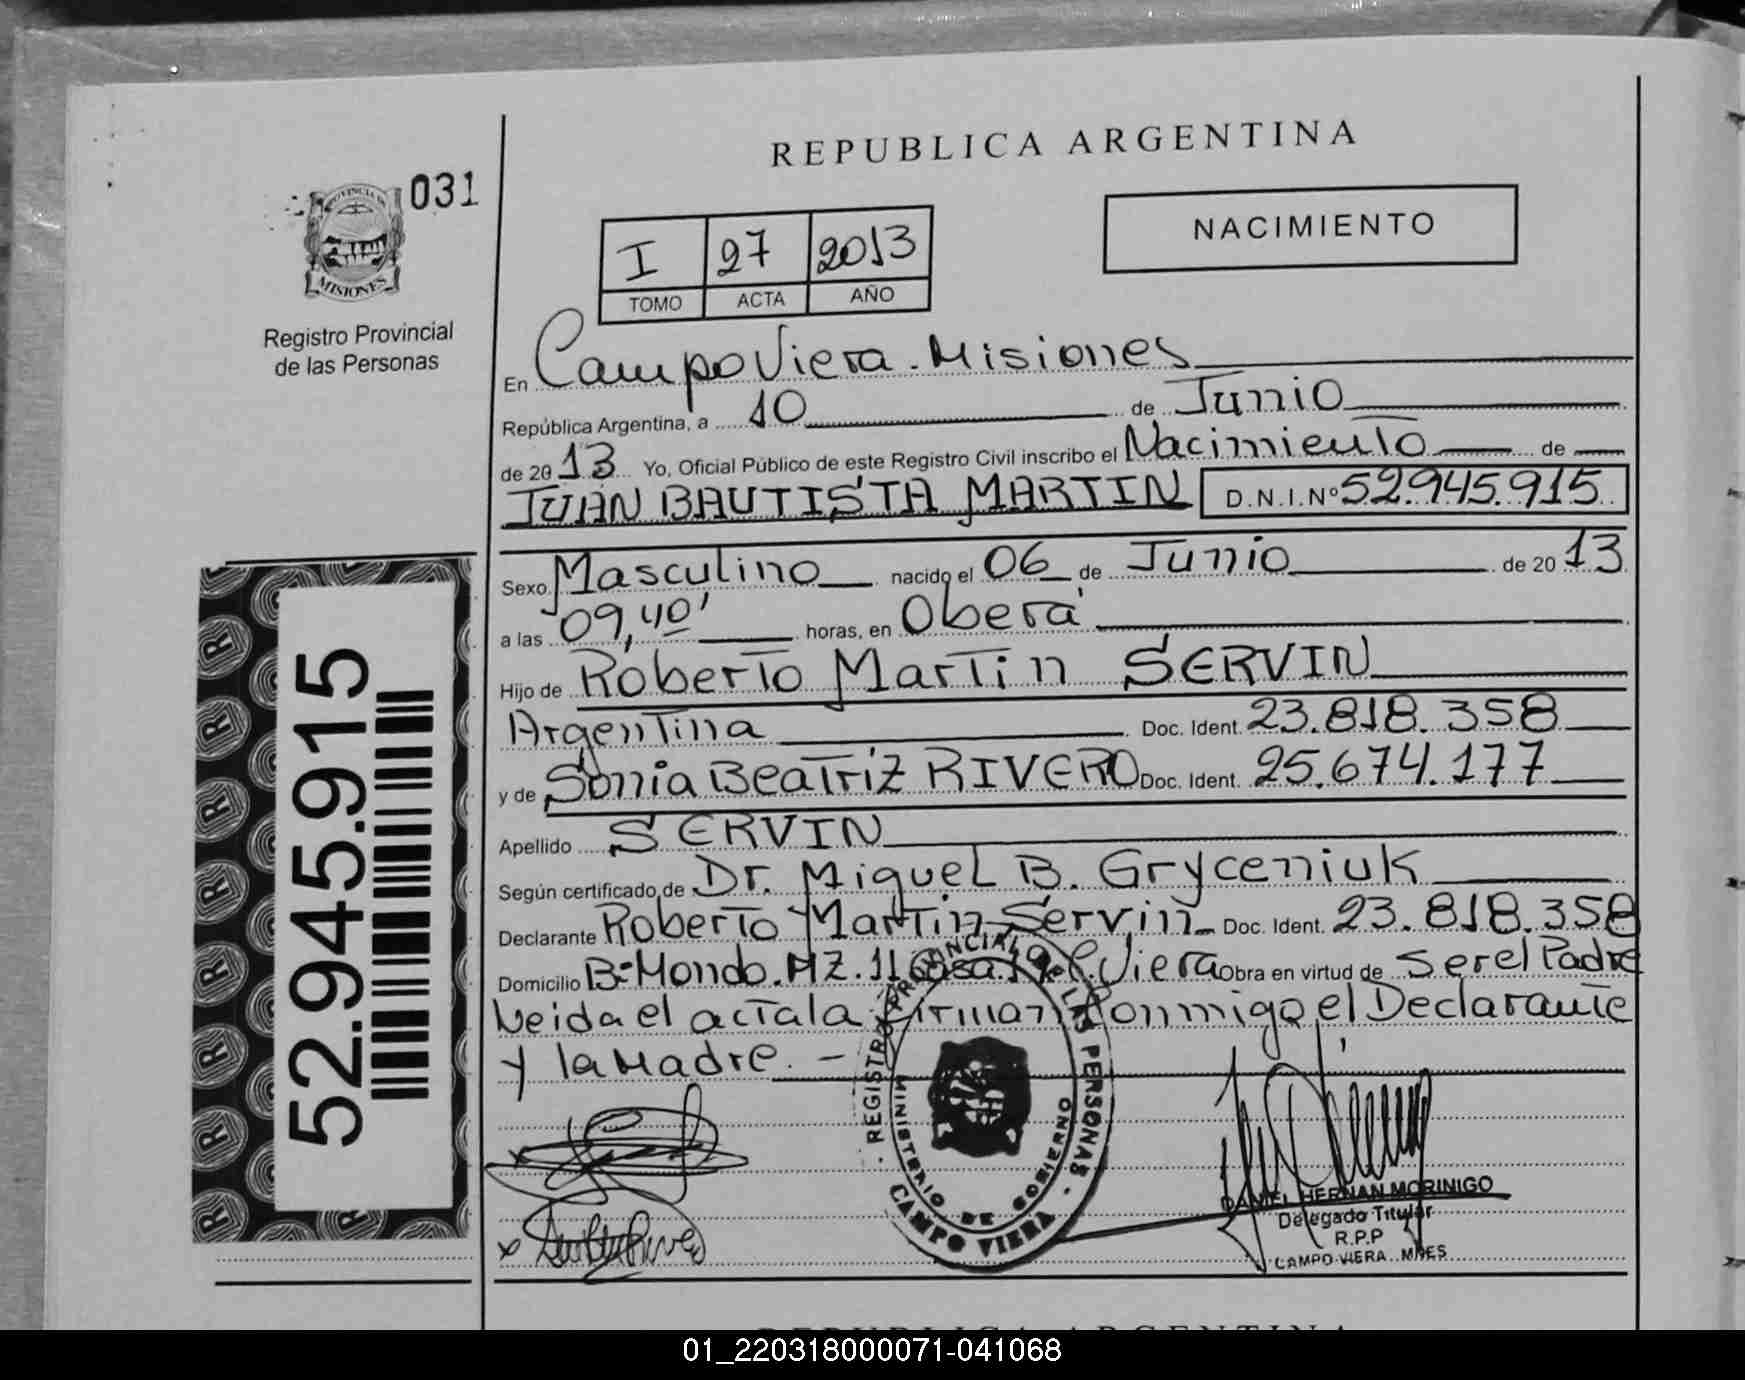 REPUBLICA ARGENTINA
031
PROVINCIA DE
MISIONES
Registro Provincial
de las Personas
I 27 2013
TOMO ACTA AÑO
NACIMIENTO
En Campo Viera - Misiones
República Argentina, a 10 de Junio
de 2013 Yo, Oficial Público de este Registro Civil inscribo el Nacimiento de
JUAN BAUTISTA MARTIN D.N.I.Nº 52.945.915
Sexo Masculino nacido el 06 de Junio de 2013
a las 09,40' horas, en Oberá
Hijo de Roberto Martin SERVIN
Argentina Doc. Ident. 23.818.358
y de Sonia Beatriz RIVERO Doc. Ident. 25.674.177
Apellido SERVIN
Según certificado de Dr. Miguel B. Gryceniuk
Declarante Roberto Martin Servin Doc. Ident. 23.818.358
Domicilio Bº Mondo. MZ. 11 Casa 19 C. Viera Obra en virtud de Ser el Padre
Leida el acta la firman conmigo el Declarante
y la Madre. -
52.945.915
REGISTRO PROVINCIAL DE LAS PERSONAS
MINISTERIO DE GOBIERNO
CAMPO VIERA
DANIEL HERNAN MORINIGO
Delegado Titular
R.P.P
CAMPO VIERA MNES
REPUBLICA ARGENTINA
01_220318000071-041068